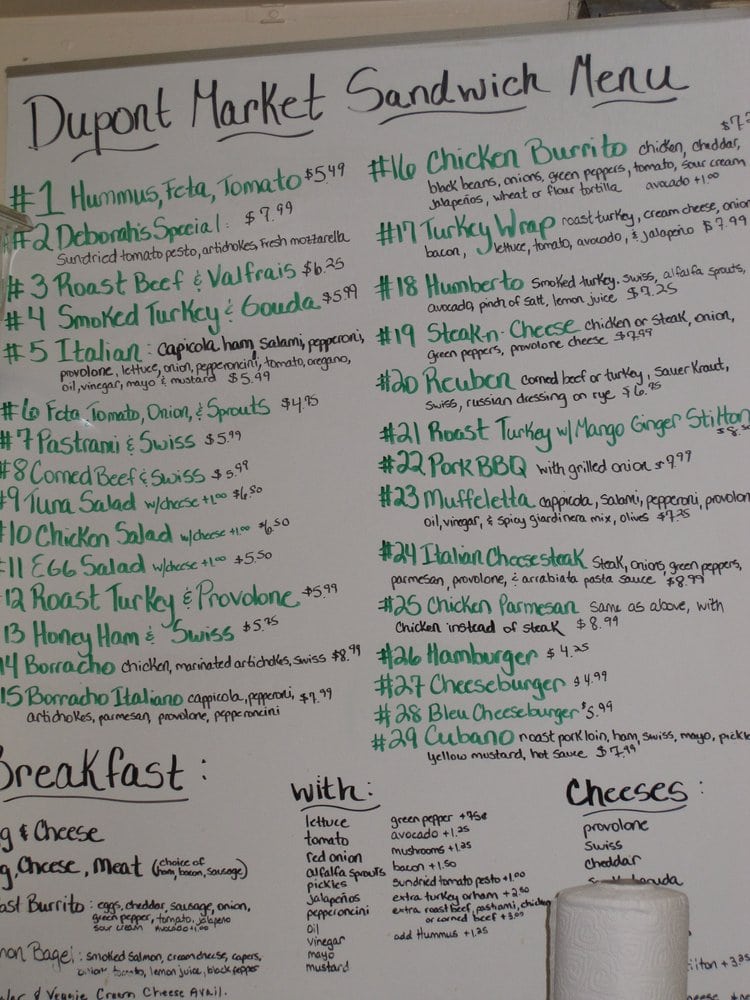 Dupont Market Sandwich Menu
#1 Hummus, Feta, Tomato $5.49
#2 Deborah's Special: $7.99
Sundried tomato pesto, artichokes, Fresh mozzarella
#3 Roast Beef & Valfrais $6.25
#4 Smoked Turkey & Gouda $5.99
#5 Italian: capicola, ham, salami, pepperoni,
provolone, lettuce, onion, pepperoncini, tomato, oregano,
oil, vinegar, mayo & mustard $5.49
#6 Feta, Tomato, Onion, & Sprouts $4.95
#7 Pastrami & Swiss $5.99
#8 Corned Beef & Swiss $5.99
#9 Tuna Salad w/cheese +1.00 $6.50
#10 Chicken Salad w/cheese +1.00 $6.50
11 Egg Salad w/cheese +1.00 $5.50
12 Roast Turkey & Provolone $5.99
13 Honey Ham & Swiss $5.75
14 Borracho chicken, marinated artichokes, swiss $8.99
15 Borracho Italiano cappicola, pepperoni, $7.99
artichokes, parmesan, provolone, pepperoncini
#16 Chicken Burrito chicken, cheddar,
black beans, onions, green peppers, tomato, sour cream
Jalapeños, wheat or flour tortilla avocado +1.00
#17 Turkey Wrap roast turkey, cream cheese, onion
bacon, lettuce, tomato, avocado, & jalapeño $7.99
#18 Humberto smoked turkey, swiss, alfalfa sprouts,
avocado, pinch of salt, lemon juice $7.25
#19 Steak-n-Cheese chicken or steak, onion,
green peppers, provolone cheese $7.99
#20 Reuben corned beef or turkey, sauer kraut,
swiss, russian dressing on rye $6.95
#21 Roast Turkey w/ Mango Ginger Stilton
#22 Pork BBQ with grilled onion $9.99
#23 Muffeletta cappicola, salami, pepperoni, provolon
oil, vinegar, & spicy giardinera mix, olives $7.25
#24 Italian Cheesesteak steak, onions, green peppers,
parmesan, provolone, & arrabiata pasta sauce $8.99
#25 Chicken Parmesan same as above, with
chicken instead of steak $8.99
#26 Hamburger $4.25
#27 Cheeseburger $4.99
#28 Bleu Cheeseburger $5.99
#29 Cubano roast pork loin, ham, swiss, mayo, pickle
yellow mustard, hot sauce $7.99
Breakfast:
g & Cheese
g, Cheese, Meat (choice of
ham, bacon, sausage)
ast Burrito: eggs, cheddar, sausage, onion,
green pepper, tomato, jalapeño
sour cream avocado +1.00
mon Bagel: smoked salmon, cream cheese, capers,
onion, tomato, lemon juice, black pepper
& Veggie Cream Cheese Avail.
with:
lettuce
tomato
red onion
alfalfa sprouts
pickles
jalapeños
pepperoncini
oil
vinegar
mayo
mustard
green pepper +75¢
avocado +1.25
mushrooms +1.25
bacon +1.50
sundried tomato pesto +1.00
extra turkey or ham +2.50
extra roast beef, pastrami, chicken
or corned beef +3.00
add Hummus +1.25
Cheeses:
provolone
swiss
cheddar